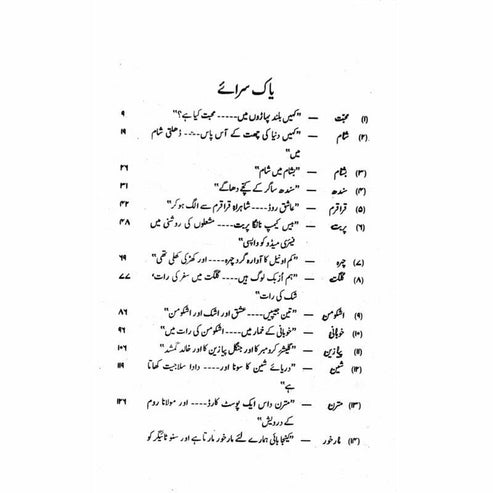 یاک سرائے
(۱) محبت — "کہیں بلند پہاڑوں میں---- محبت کیا ہے؟" ۹
(۲) شام — "کہیں دنیا کی چھت کے آس پاس---- ڈھلتی شام ۱۹
میں"
(۳) بشام — "بشام میں شام" ۲۶
(۴) سندھ — "سندھ ساگر کے کچے دھاگے" ۳۱
(۵) قراقرم — "عاشق روڈ---- شاہراہ قراقرم سے الگ ہو کر" ۴۲
(۶) پربت — "بیس کیمپ نانگا پربت---- مشعلوں کی روشنی میں ۴۸
فیئری میڈو کو واپسی"
(۷) چہرہ — "کم اونیل کا آوارہ گرد چہرہ---- اور کھڑکی کھلی تھی" ۶۹
(۸) گلگت — "ہم اُزبک لوگ ہیں---- گلگت میں سفر کی رات' ۷۷
شک کی رات"
(۹) اشکومن — "تین جیپیں---- عشق اور اشک اور اشکومن" ۸۶
(۱۰) خوبانی — "خوبانی کے خمار میں---- اشکومن کی رات میں" ۹۶
(۱۱) پیازین — "گلیشئر کرومبر کا اور جنگل پیازین کا اور خالد گمشدہ" ۱۰۶
(۱۲) شین — "دریائے شین کا سونا اور---- دادا سلاجیت کھاتا ۱۱۹
ہے"
(۱۳) مترن — "مترن داس ایک پوسٹ کارڈ---- اور مولانا روم ۱۲۶
کے درویش"
(۱۴) مارخور — "کینجا بائی ہمارے لئے مارخور مارتا ہے اور سنو ٹائیگر کو